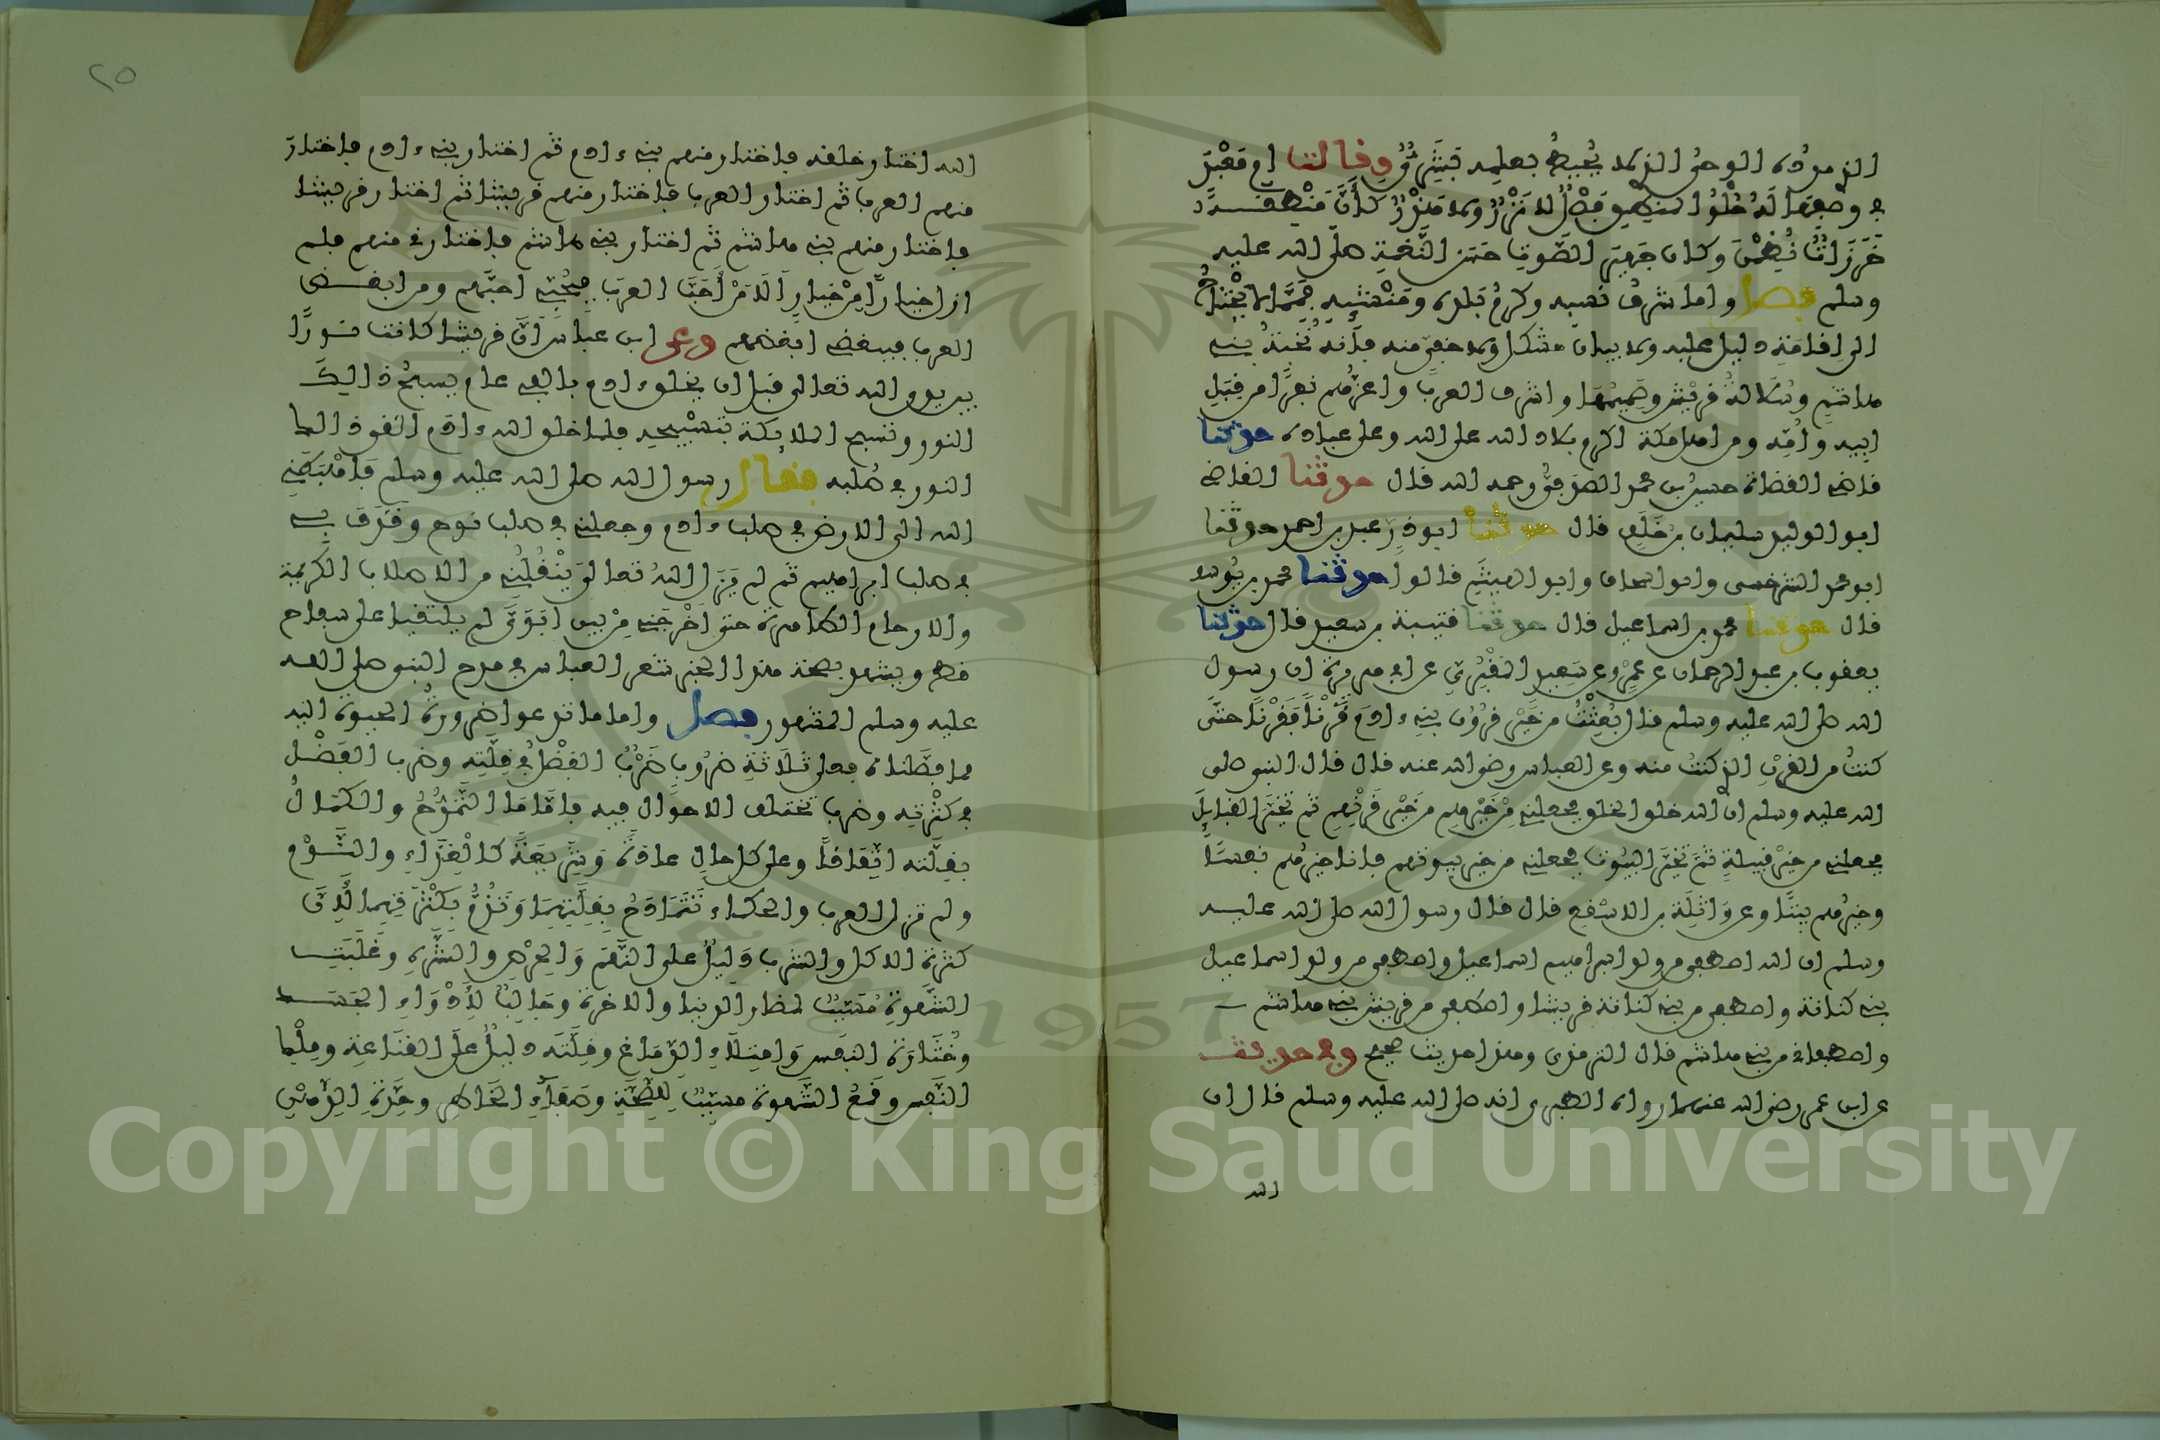 الذي مدده الوحي الذي لا يحيط بعلمه بشري وقالت ام معبد
في وصفها له حلو المنطق فصل لا نزر ولا هذر كأن منطقه
خرزات نظمن وكان جهير الصوت حسن النغمة صلى الله عليه
وسلم فصل واما شرف نسبه وكرم بلده ومنشئه فمما لا يحتاج
الى اقامة دليل عليه ولا بيان مشكل ولا خفي منه فإنه نخبة بني
هاشم وسلالة قريش وصميمها واشرف العرب واعزهم نفرا من قبل
ابيه وامه ومن اهل مكة اكرم بلاد الله على الله وعلى عباده حدثنا
قاضي القضاة حسين بن محمد الصدفي رحمه الله قال حدثنا القاضي
ابو الوليد سليمان بن خلف قال حدثنا ابو ذر عبد بن احمد حدثنا
ابو محمد السرخسي وابو اسحاق وابو الهيثم قالوا حدثنا محمد بن يوسف
قال حدثنا محمد بن اسماعيل قال حدثنا قتيبة بن سعيد قال حدثنا
يعقوب بن عبد الرحمان عن عمرو عن سعيد المقبري عن ابي هريرة ان رسول
الله صلى الله عليه وسلم قال بعثت من خير قرون بني ءادم قرنا فقرنا حتى
كنت من القرن الذي كنت منه وعن العباس رضي الله عنه قال قال النبي صلى
الله عليه وسلم ان الله خلق الخلق فجعلني من خيرهم من خير قرنهم ثم تخير القبايل
فجعلني من خير قبيلة ثم تخير البيوت فجعلني من خير بيوتهم فانا خيرهم نفسا
وخيرهم بيتا وعن واثلة بن الاسقع قال قال رسول الله صلى الله عليه
وسلم ان الله اصطفى من ولد ابراهيم اسماعيل واصطفى من ولد اسماعيل
بني كنانة واصطفى من بني كنانة قريشا واصطفى من قريش بني هاشم
واصطفاني من بني هاشم قال الترمذي وهذا حديث صحيح وفي حديث
عن ابن عمر رضي الله عنهما رواه الطبري انه صلى الله عليه وسلم قال ان
الله
٢٥
الله اختار خلقه فاختار منهم بني ءادم ثم اختار بني ءادم فاختار
منهم العرب ثم اختار العرب فاختار منهم قريشا ثم اختار قريشا
فاختار منهم بني هاشم ثم اختار بني هاشم فاختارني منهم فلم
ازل خيارا من خيار الا من احب العرب فبحبي احبهم ومن ابغض
العرب فببغضي ابغضهم وعن ابن عباس ان قريشا كانت نورا
بين يدي الله تعالى قبل ان يخلق ءادم بالفي عام يسبح ذالك
النور وتسبح الملايكة بتسبيحه فلما خلق الله ءادم القى ذالك
النور في صلبه فقال رسول الله صلى الله عليه وسلم فاهبطني
الله الى الارض في صلب ءادم وجعلني في صلب نوح وقذف بي
في صلب ابراهيم ثم لم يزل الله تعالى ينقلني من الاصلاب الكريمة
والارحام الطاهرة حتى اخرجني من بين ابوي لم يلتقيا على سفاح
قط ويشهد بصحة هذا الخبر شعر العباس في مدح النبي صلى الله
عليه وسلم المشهور فصل واما ما تدعوا ضرورة الحيوة اليه
مما فصلناه فعلى ثلاثة ضروب ضرب الفضل في قلته وضرب الفضل
في كثرته وضرب تختلف الاحوال فيه فاما ما التمدح والكمال
بقلته اتفاقا وعلى كل حال عادة وشريعة كالغذاء والنوم
ولم تزل العرب والحكماء تتمادح بقلتهما وتذم بكثرتهما لان
كثرة الاكل والشرب دليل على النهم والحرص والشره وغلبة
الشهوة مسبب لمضار الدنيا والاخرة وجالب لادواء الجسد
وخثارة النفس وامتلاء الدماغ وقلته دليل على القناعة وملك
النفس وقمع الشهوة مسبب للصحة وصفاء الخاطر وحدة الذهن
Copyright © King Saud University
1957